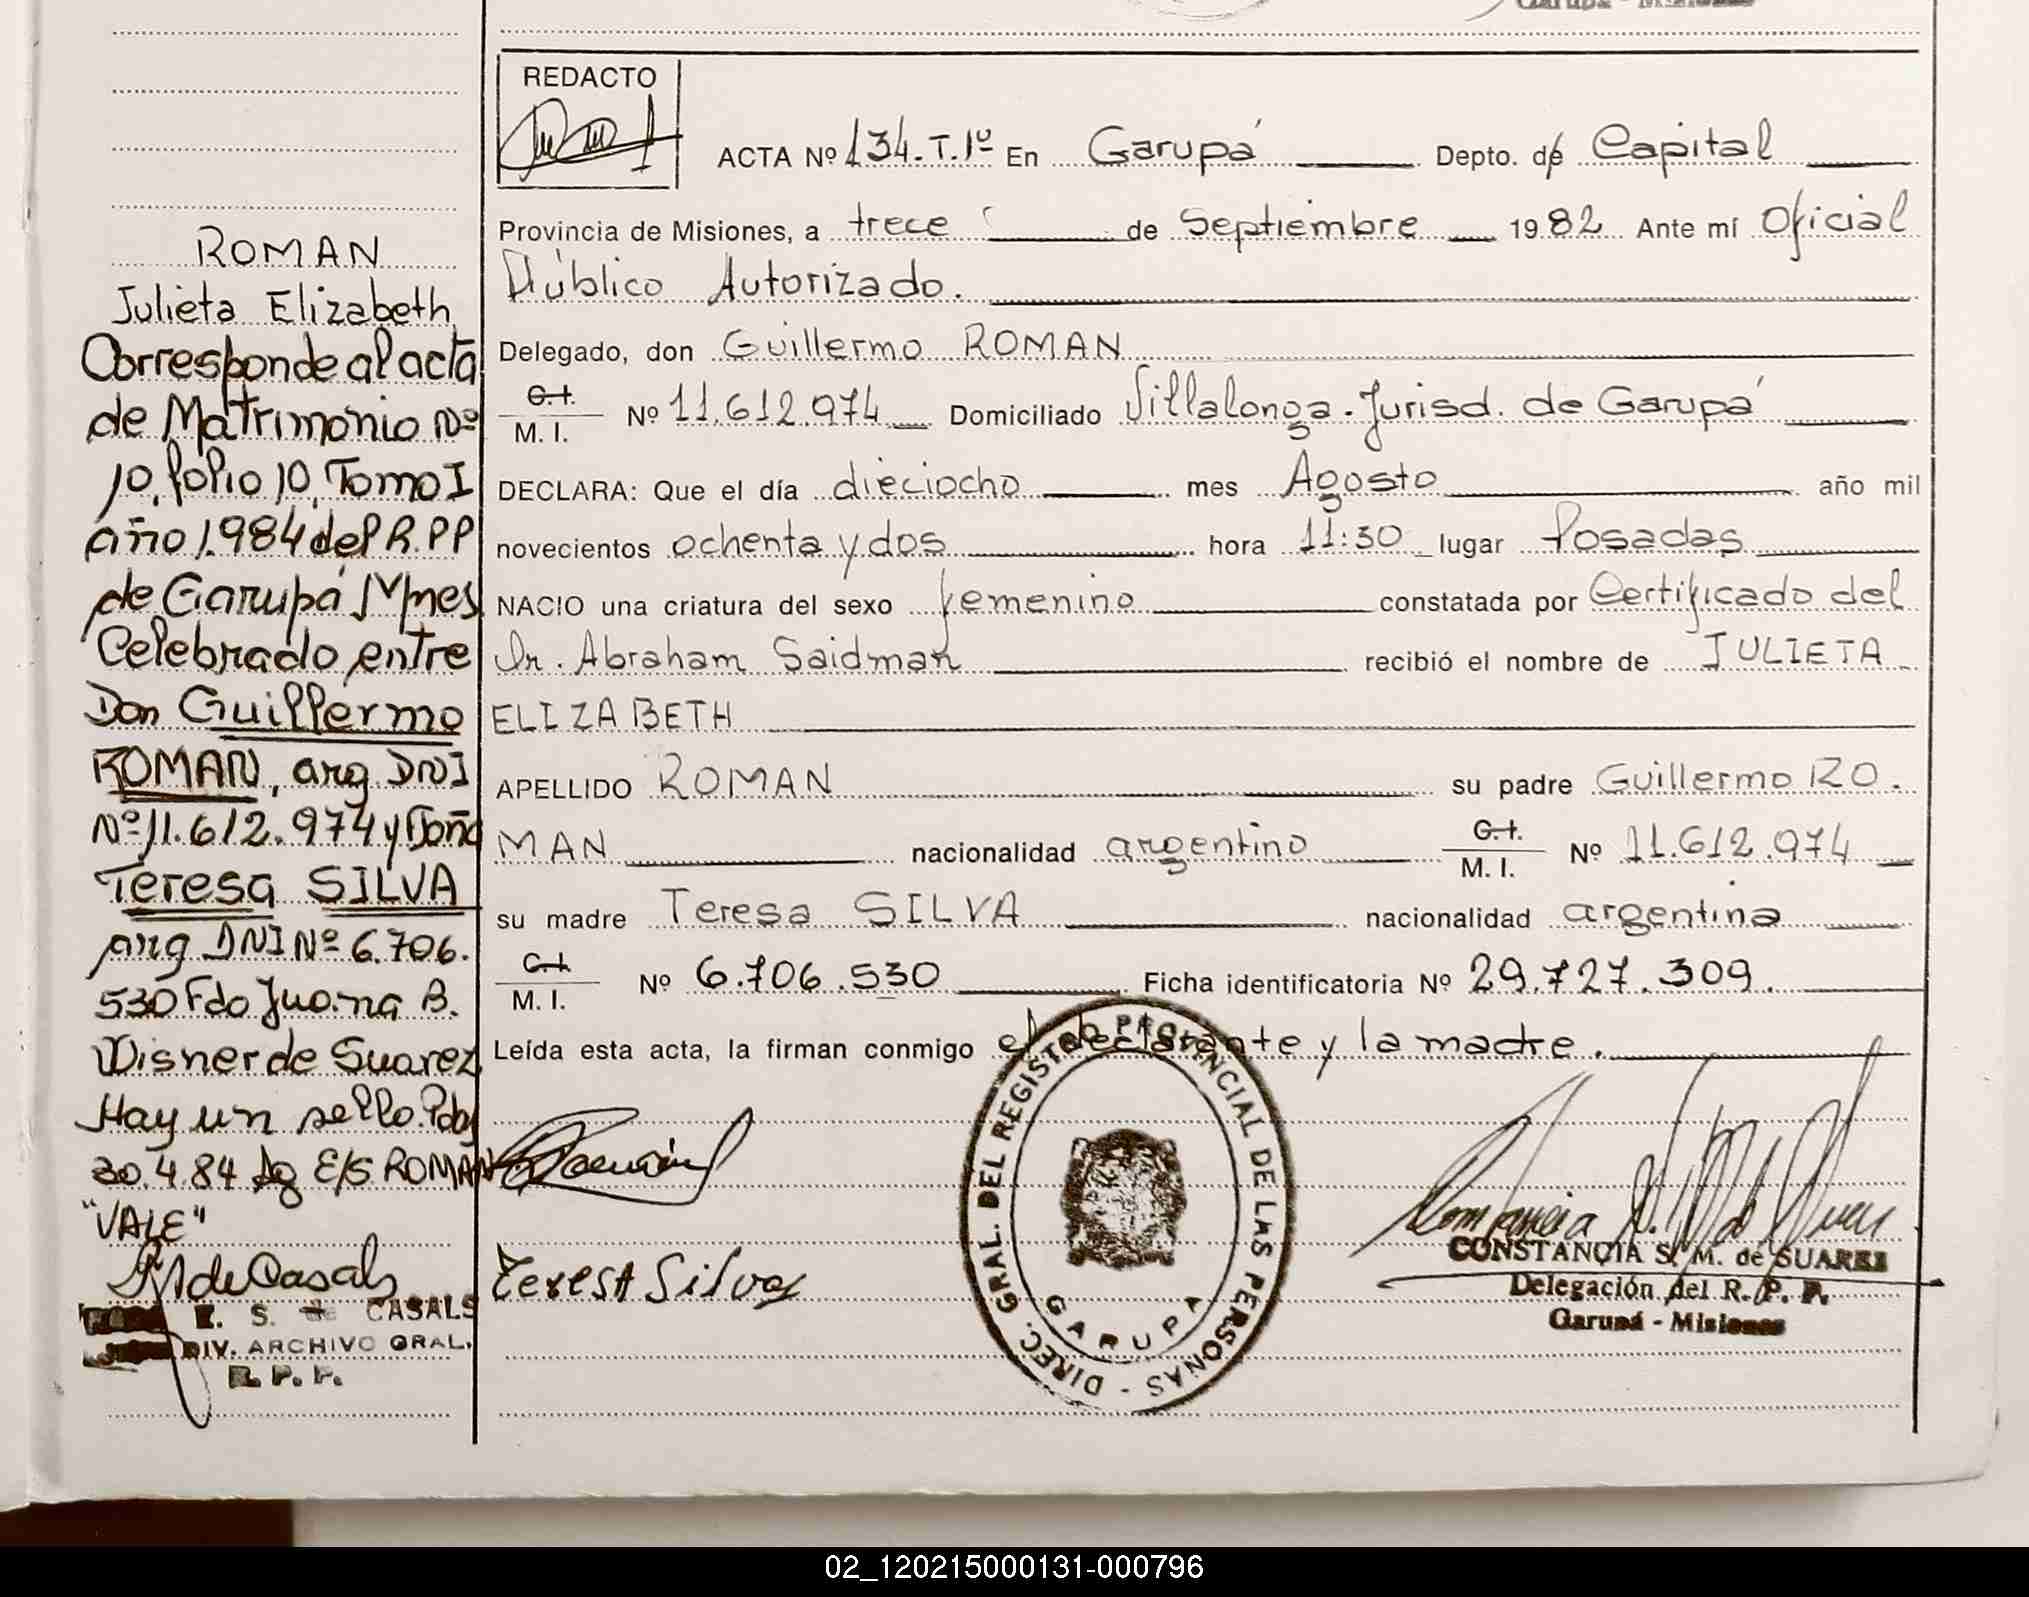 Garupá - Misiones
ROMAN
Julieta Elizabeth
Corresponde al acta
de Matrimonio Nº
10, folio 10, Tomo I
año 1.984 del R.PP
de Garupá Mnes
Celebrado entre
Don Guillermo
ROMAN, arg. DNI
Nº 11.612.974 y Doña
Teresa SILVA
arg DNI Nº 6.706.
530 Fdo Juana B.
Wisner de Suarez
Hay un sello. Pdas
30.4.84 Ag E/S ROMAN
"VALE"
de Casals
E. S. de CASALS
DIV. ARCHIVO GRAL.
R. P. P.
REDACTO
ACTA Nº 134.T.1º En Garupá Depto. de Capital
Provincia de Misiones, a trece de Septiembre 1982 Ante mí Oficial
Público Autorizado.
Delegado, don Guillermo ROMAN
C.I. M. I. Nº 11.612.974 Domiciliado Villalonga. Jurisd. de Garupá
DECLARA: Que el día dieciocho mes Agosto año mil
novecientos ochenta y dos hora 11:30 lugar Posadas
NACIO una criatura del sexo femenino constatada por Certificado del
Dr. Abraham Saidman recibió el nombre de JULIETA
ELIZABETH
APELLIDO ROMAN su padre Guillermo RO.
MAN nacionalidad argentino C.I. M. I. Nº 11.612.974
su madre Teresa SILVA nacionalidad argentina
C.I. M. I. Nº 6.706.530 Ficha identificatoria Nº 29.727.309.
Leída esta acta, la firman conmigo el declarante y la madre.
Teresa Silva
DIREC. GRAL. DEL REGISTRO PROVINCIAL DE LAS PERSONAS -
GARUPA
CONSTANCIA S. M. de SUAREZ
Delegación del R. P. P.
Garupá - Misiones
02_120215000131-000796